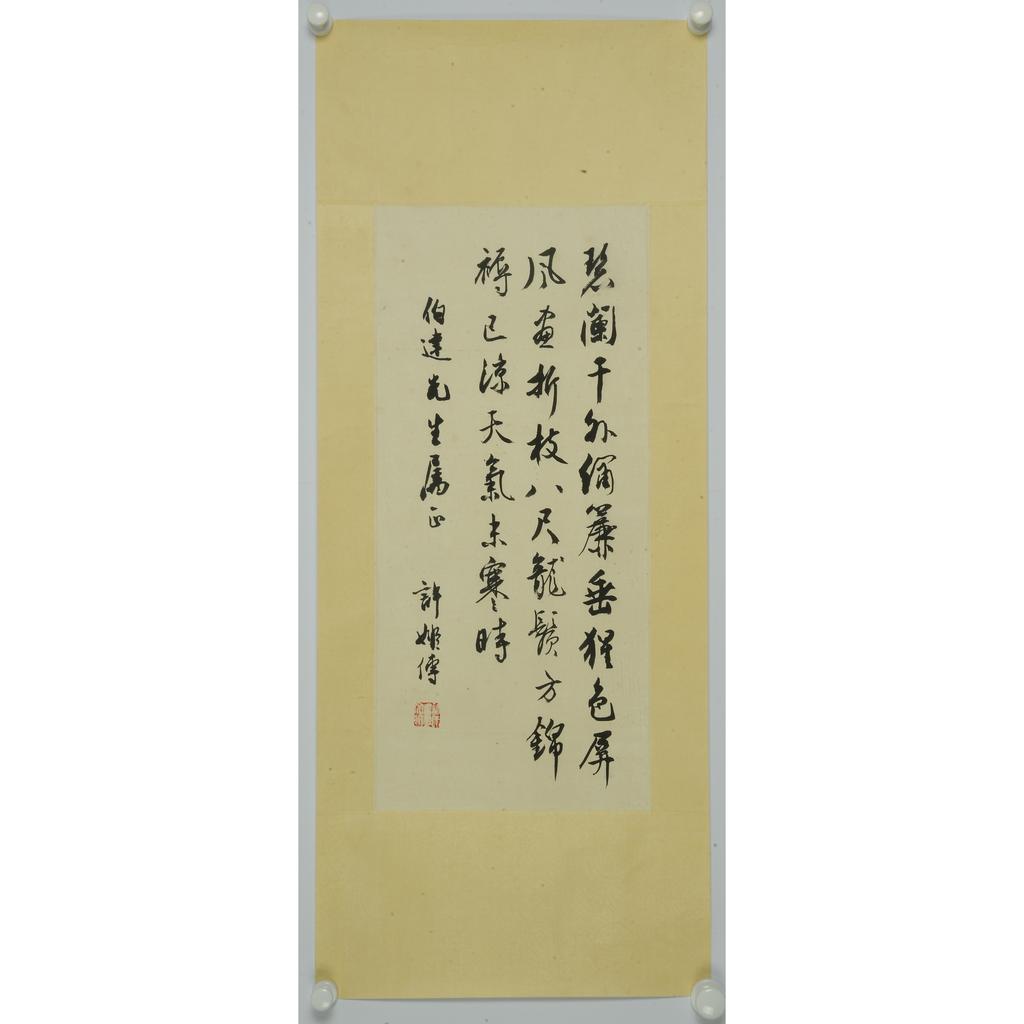 碧闌干外繡簾垂猩色屏
風畫折枝八尺龍鬚方錦
褥已涼天氣未寒時
伯達先生属正
許姬傳